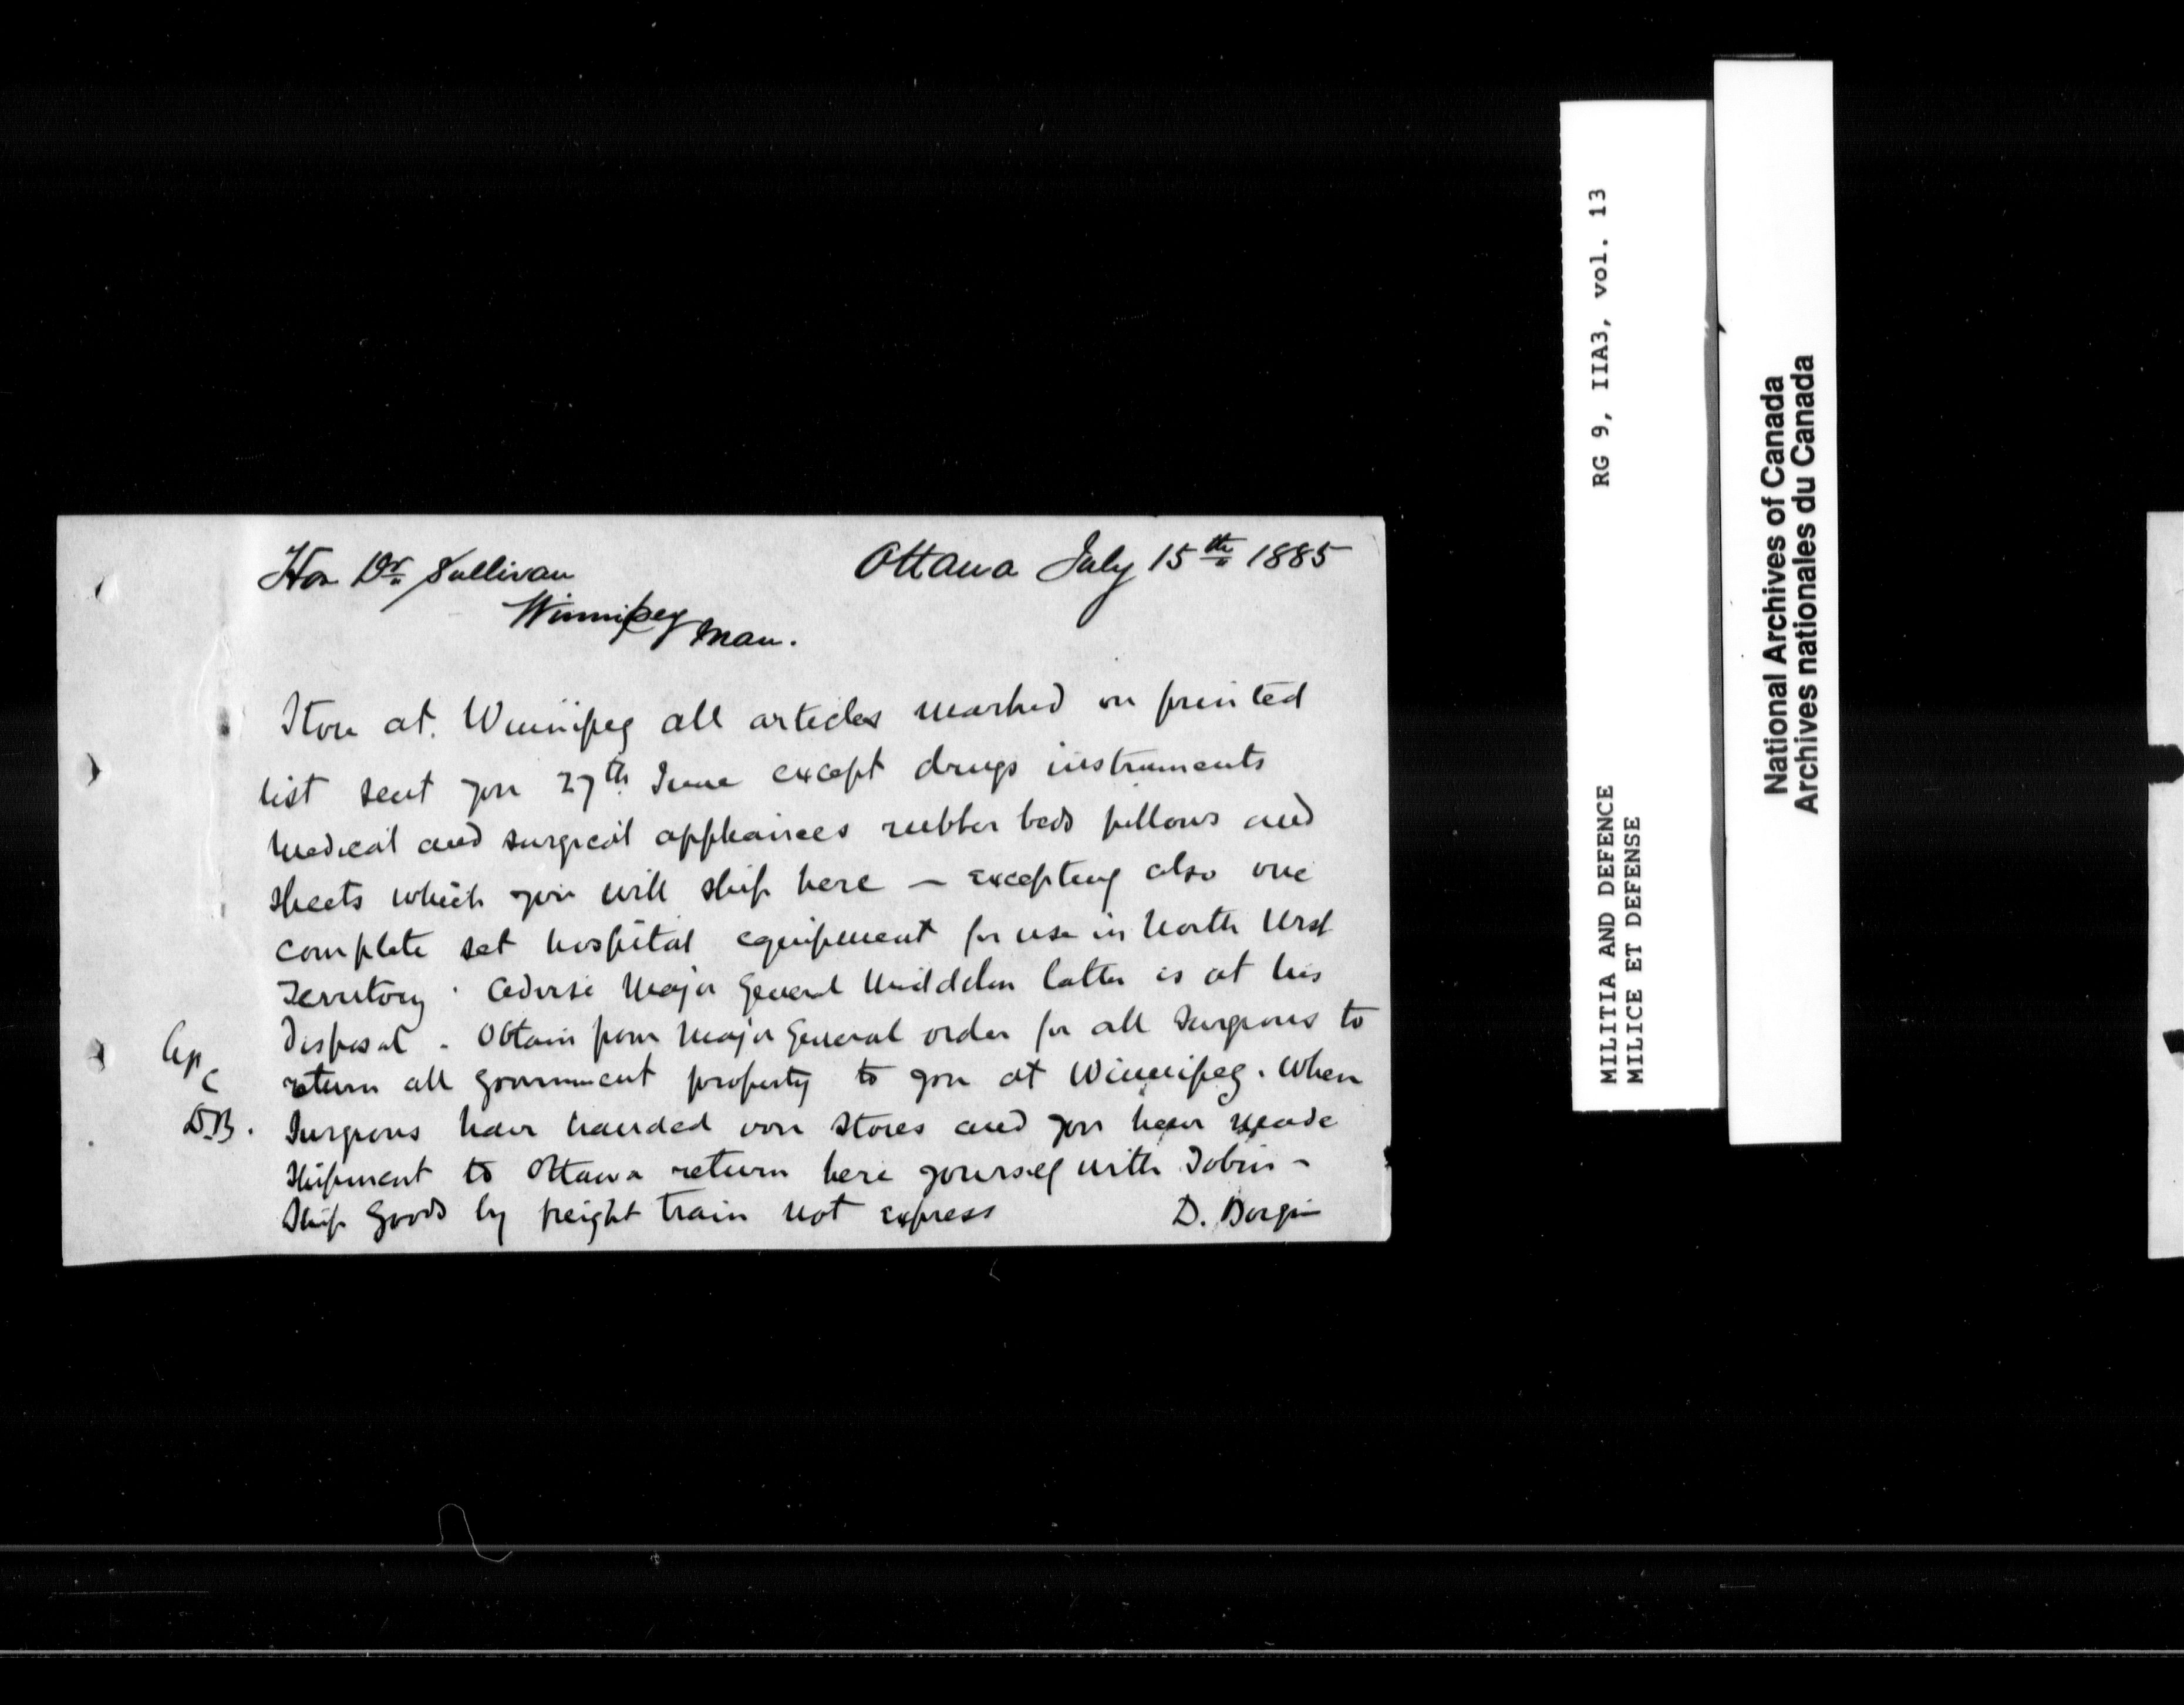 Hon Dr. Sullivan
Winnipeg Man.
Ottawa July 15th 1885
Store at Winnipeg all articles marked on printed
list sent you 27th June except drugs instruments
medical and surgical appliances rubber beds pillows and
sheets which you will ship here — excepting also one
complete set hospital equipment for use in North West
Territory. Advise Major General Middleton latter is at his
disposal. Obtain from Major General order for all Surgeons to
return all government property to you at Winnipeg. When
Surgeons have handed over stores and you have made
shipment to Ottawa return here yourself with Tobin -
Ship goods by freight train not express
D. Bergin
D.B.
RG 9, IIA3, vol. 13
MILITIA AND DEFENCE
MILICE ET DEFENSE
National Archives of Canada
Archives nationales du Canada